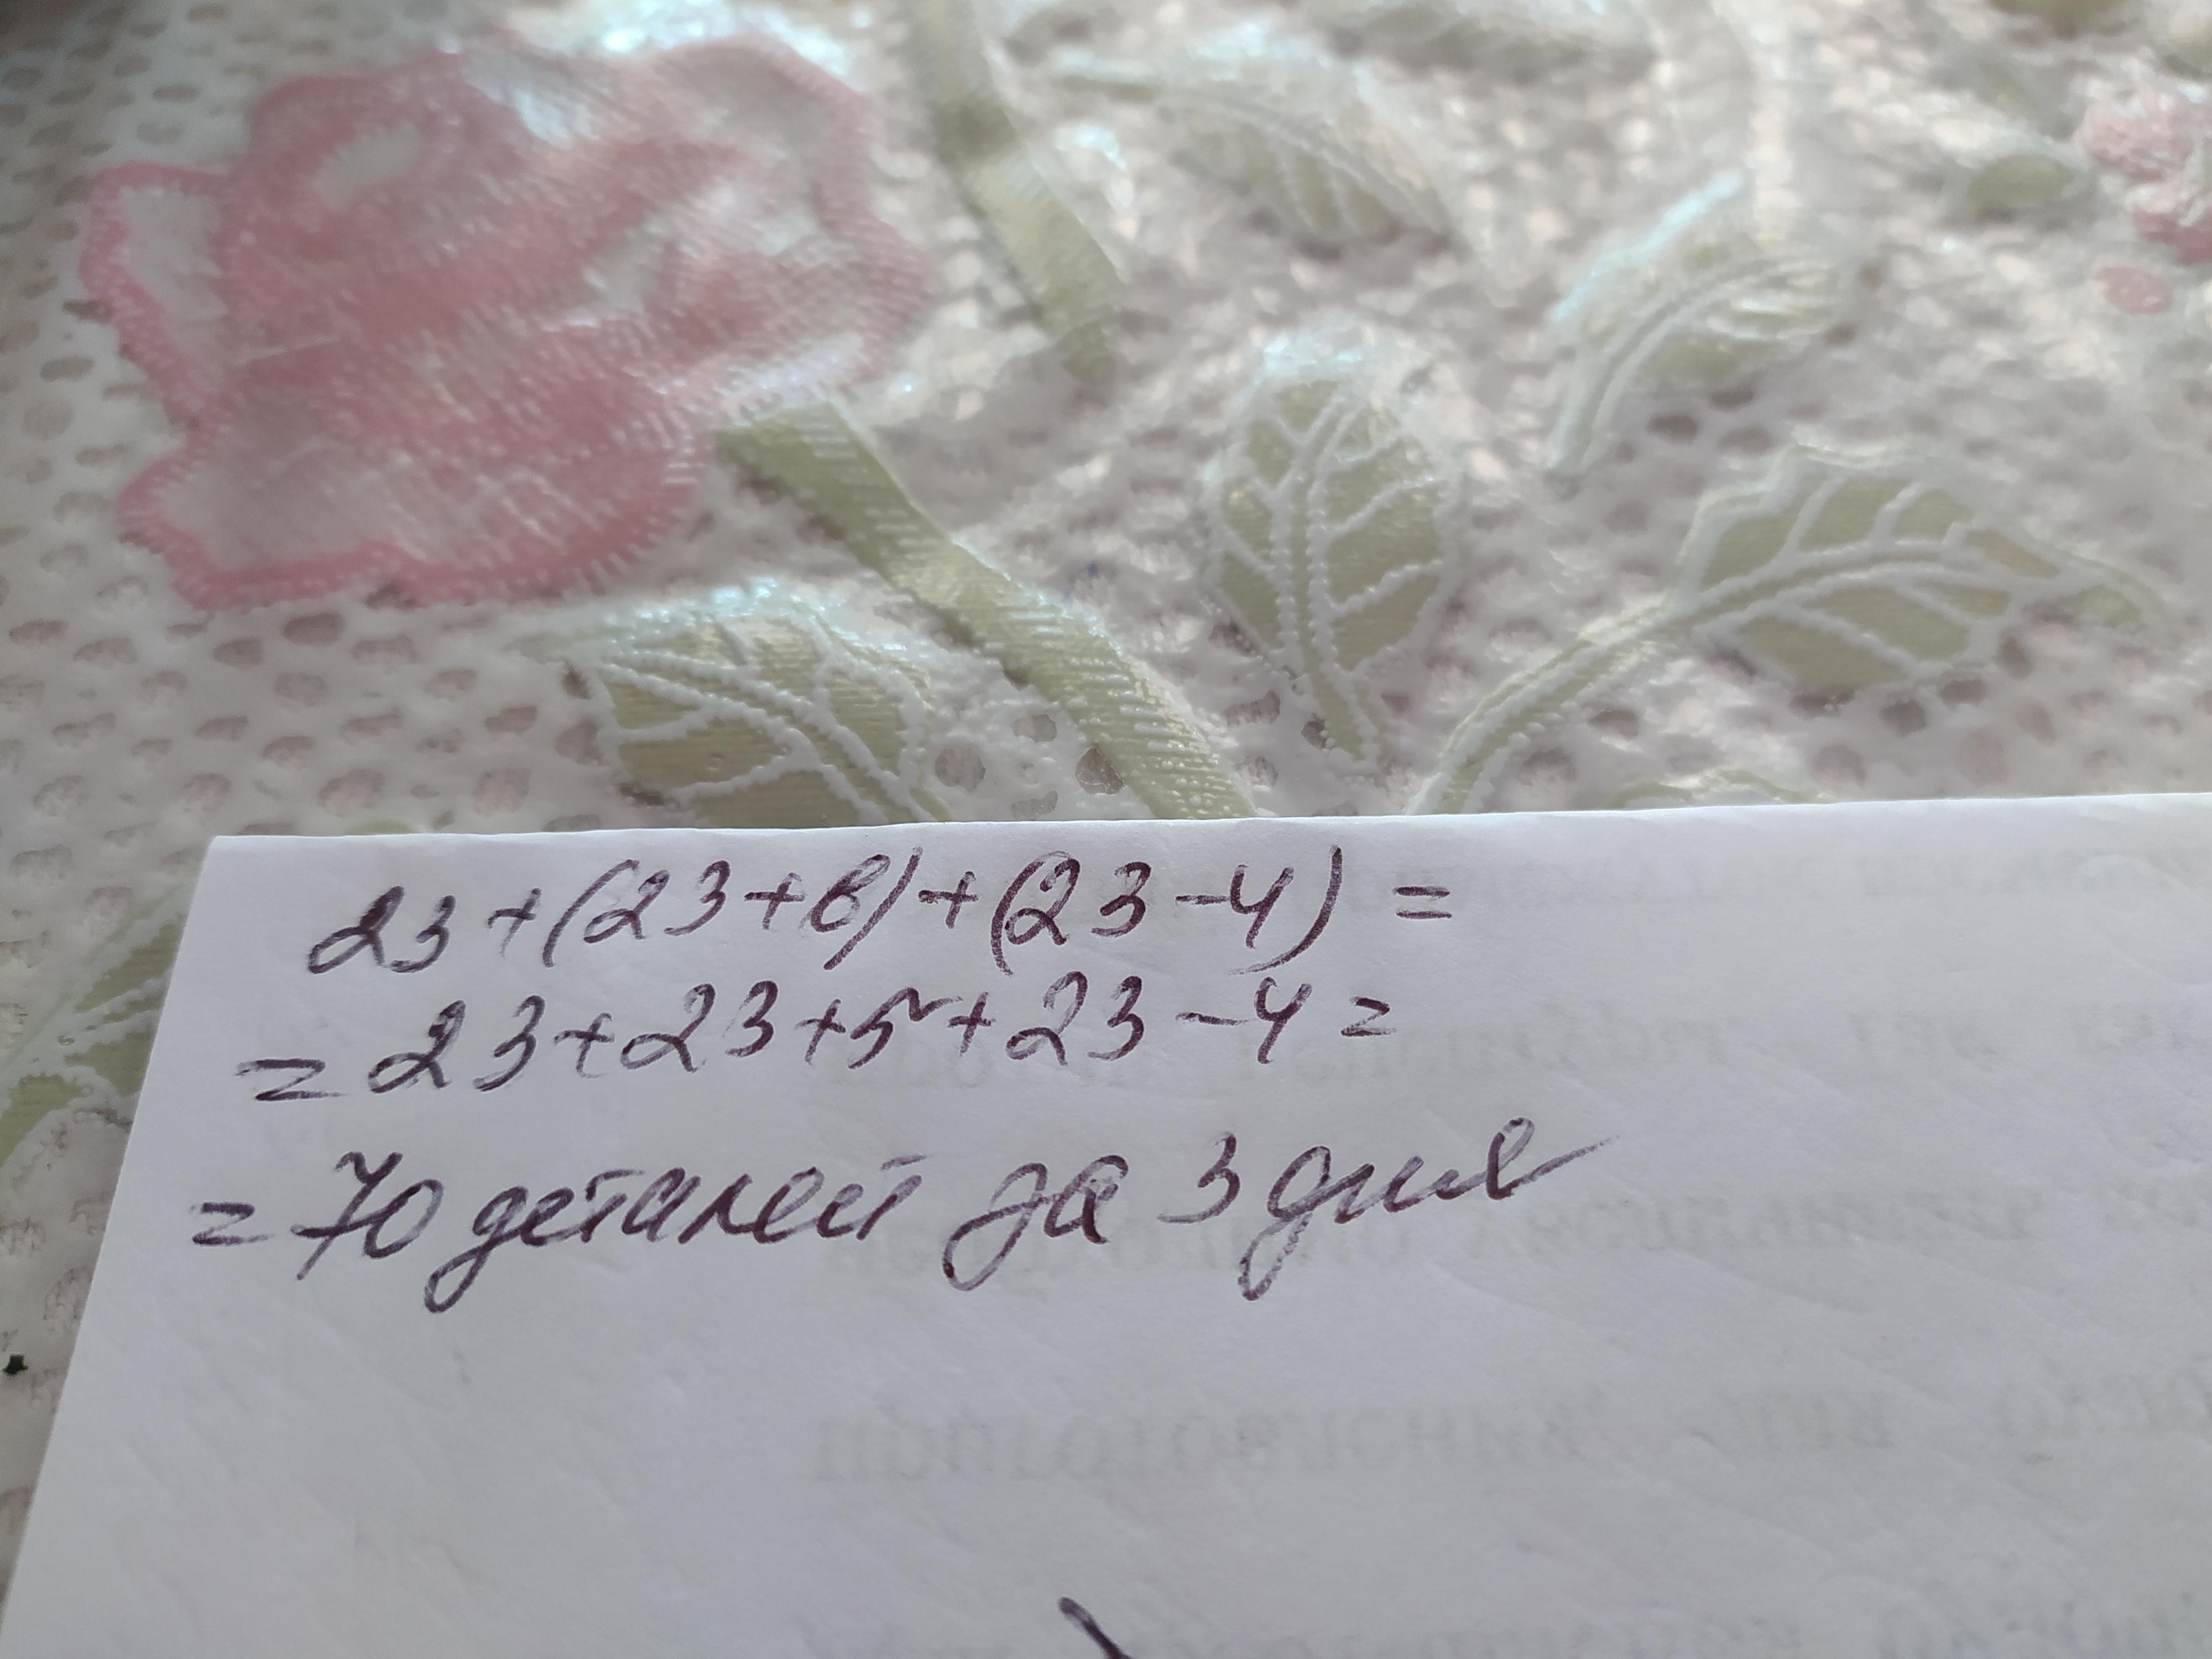 23+(23+в)+(23-4)=
=23+23+5+23-4=
=70 деталей за 3 дня